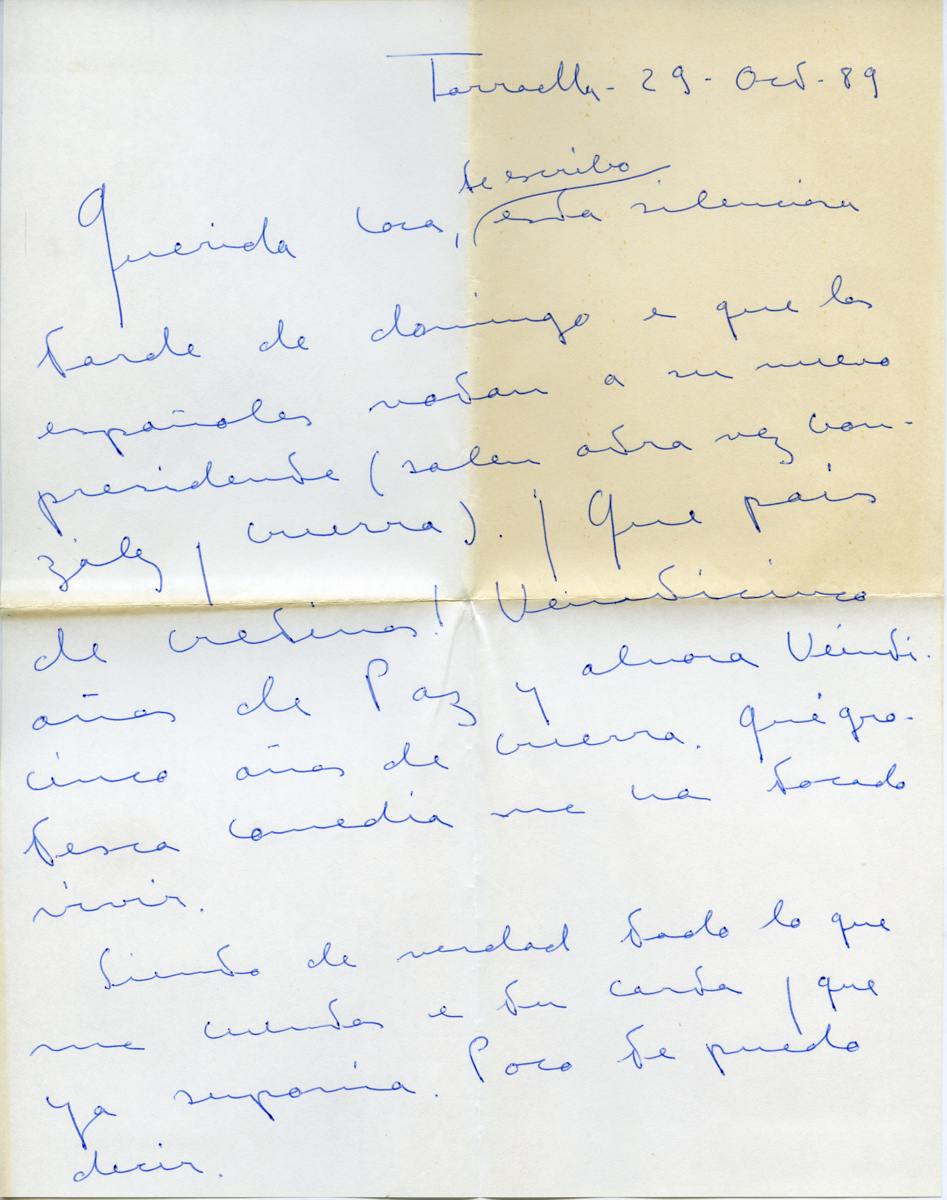 Torroella - 29 - Oct - 89
te escribo
Querida Coca, esta silenciosa
tarde de domingo e que los
españoles votan a su nuevo
presidente (salen otra vez Gon-
zález y Guerra). ¡Que país
de cretinos! Veinticinco
años de Paz y ahora Veinti-
cinco años de Guerra. Qué gro-
tesca comedia me ha tocado
vivir.
Siento de verdad todo lo que
me cuentas e tu carta y que
ya suponía. Poco te puedo
decir.